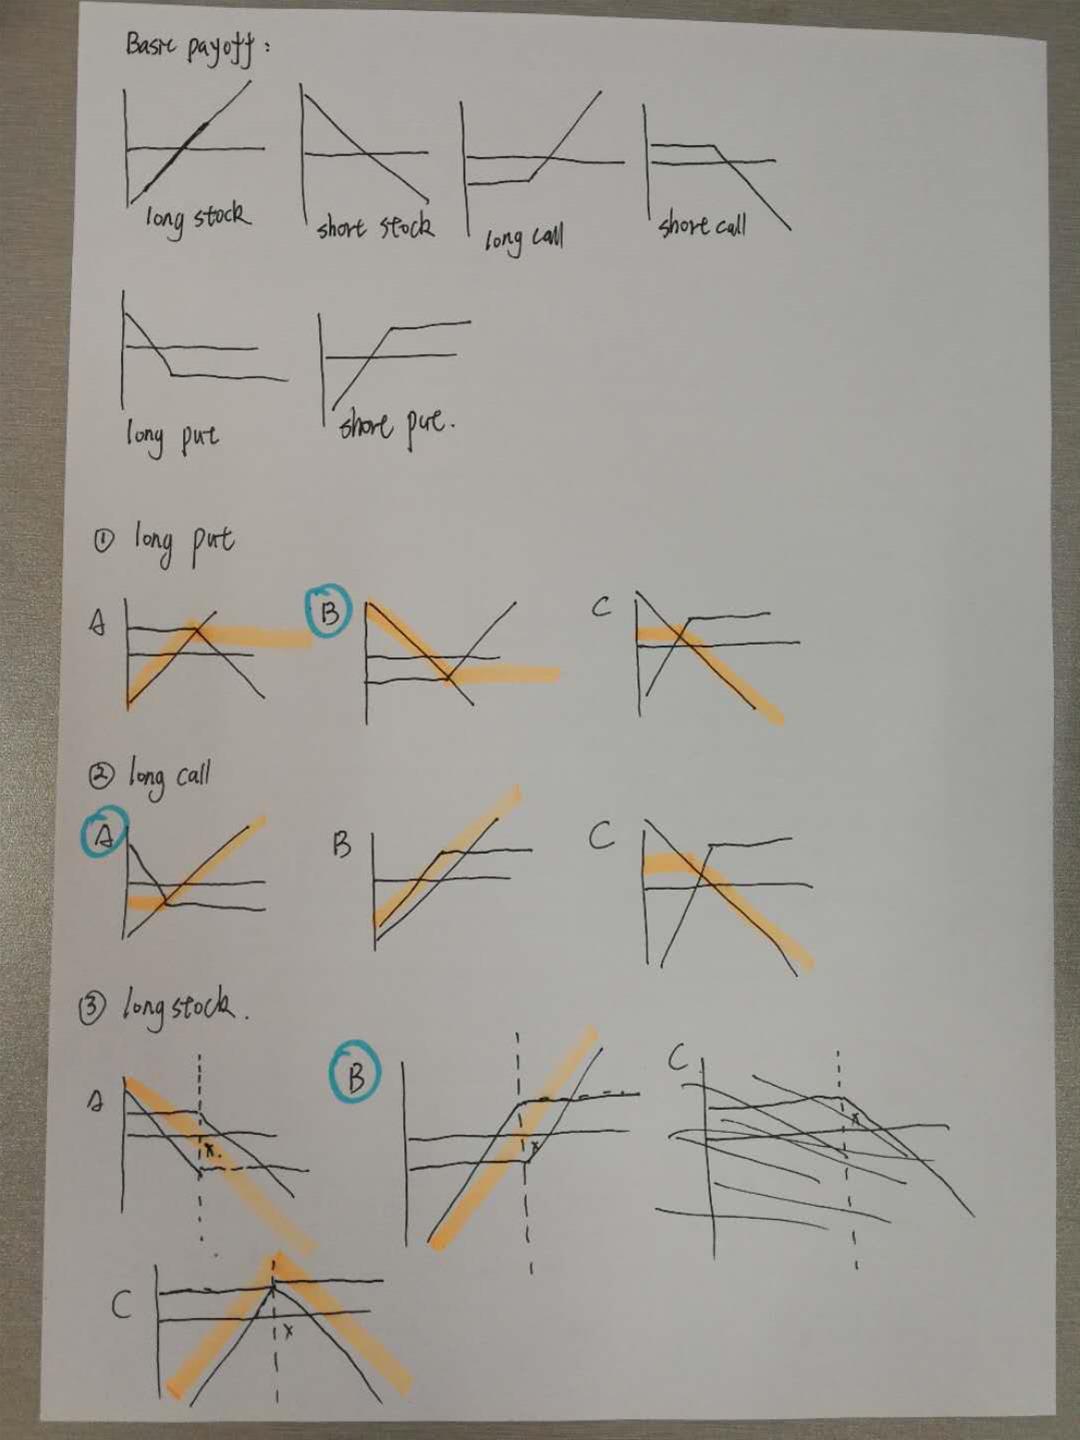 Basic payoff:
long stock
short stock
long call
short call
long put
short put.
① long put
A
B
C
② long call
A
B
C
③ long stock.
A
x.
B
x
C
x
C
x